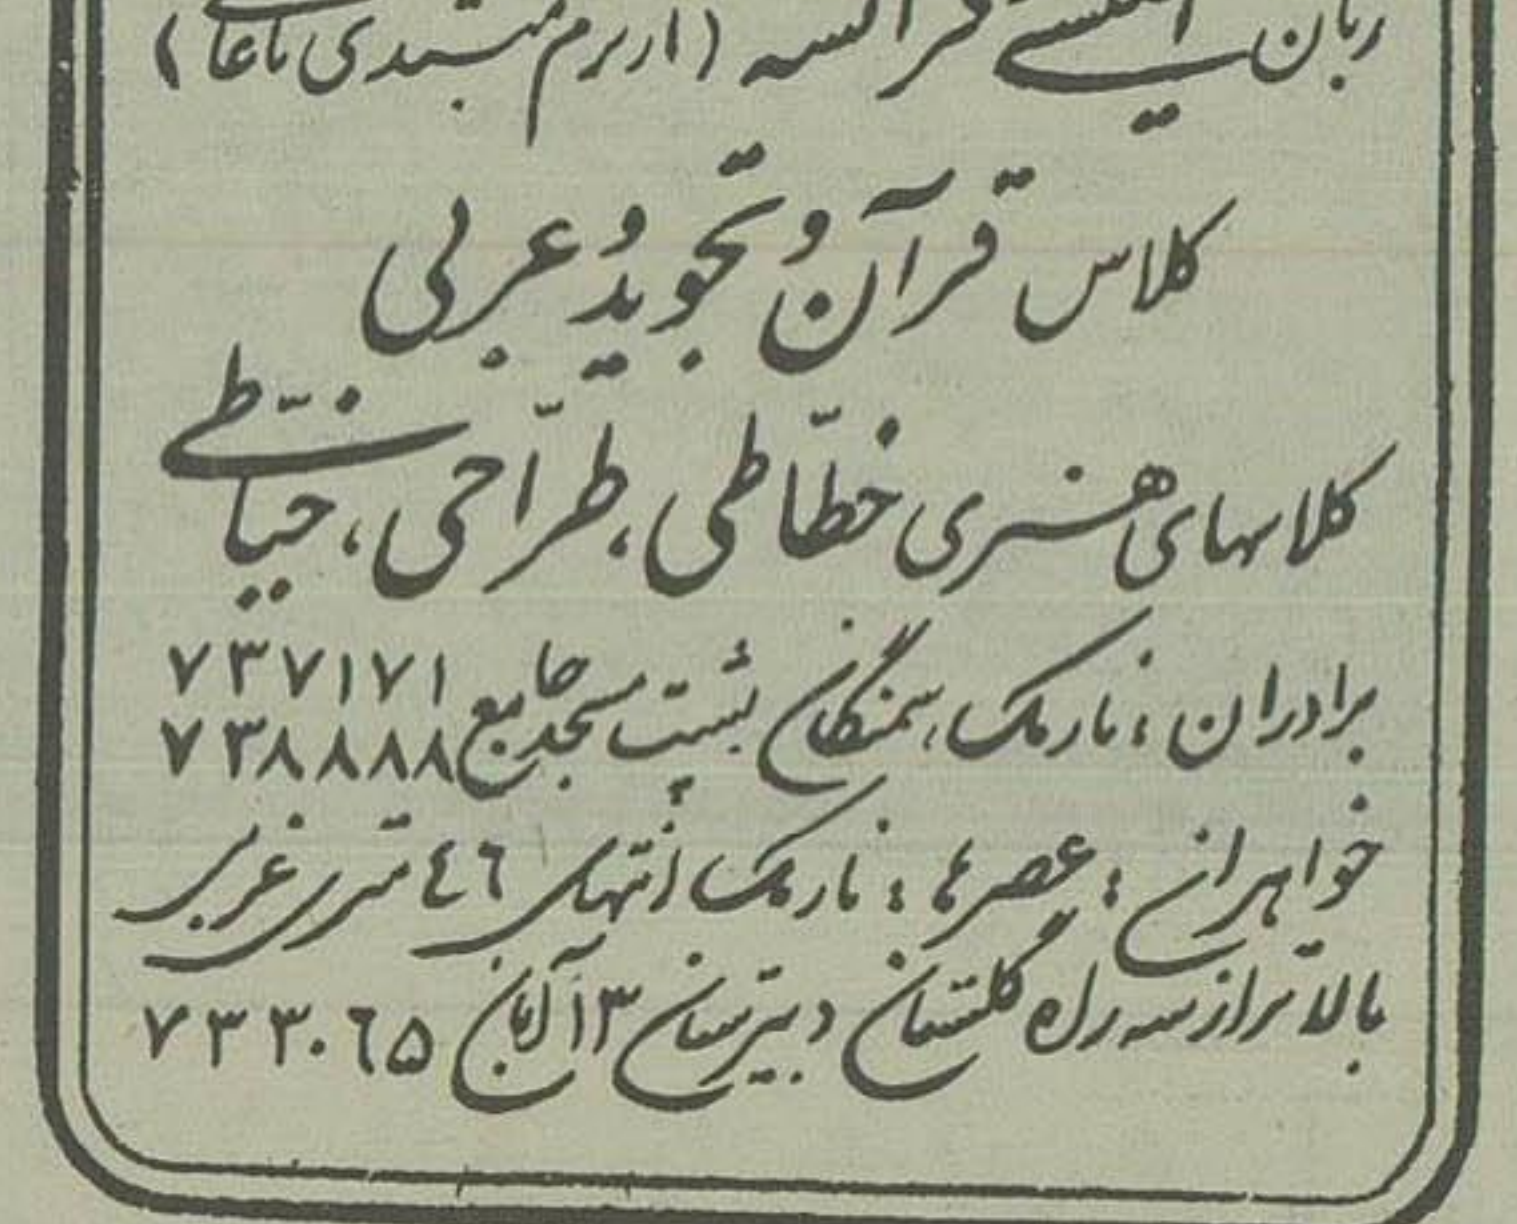 زبان انگلیسی فرانسه (از ترم مبتدی تا عا)
کلاس قرآن و تجوید و عربی
کلاسهای هنری خطّاطی، طرّاحی، خیّاطی
برادران: نارمک، سمنگان پشت مسجد جامع ۷۳۷۱۷۱
۷۳۸۸۸۸
خواهران: عصرها: نارمک انتهای ۴۶ متری غربی
بالاتر از سه راه گلستان دبیرستان ۱۳ آبان ۷۳۳۰۶۵